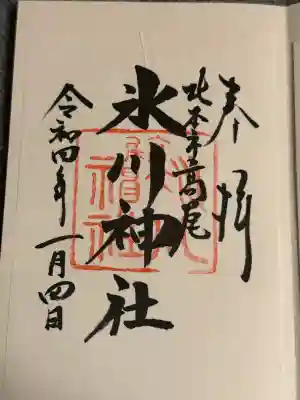 奉拝
北本市高尾
氷川神社
令和四年
一月四日